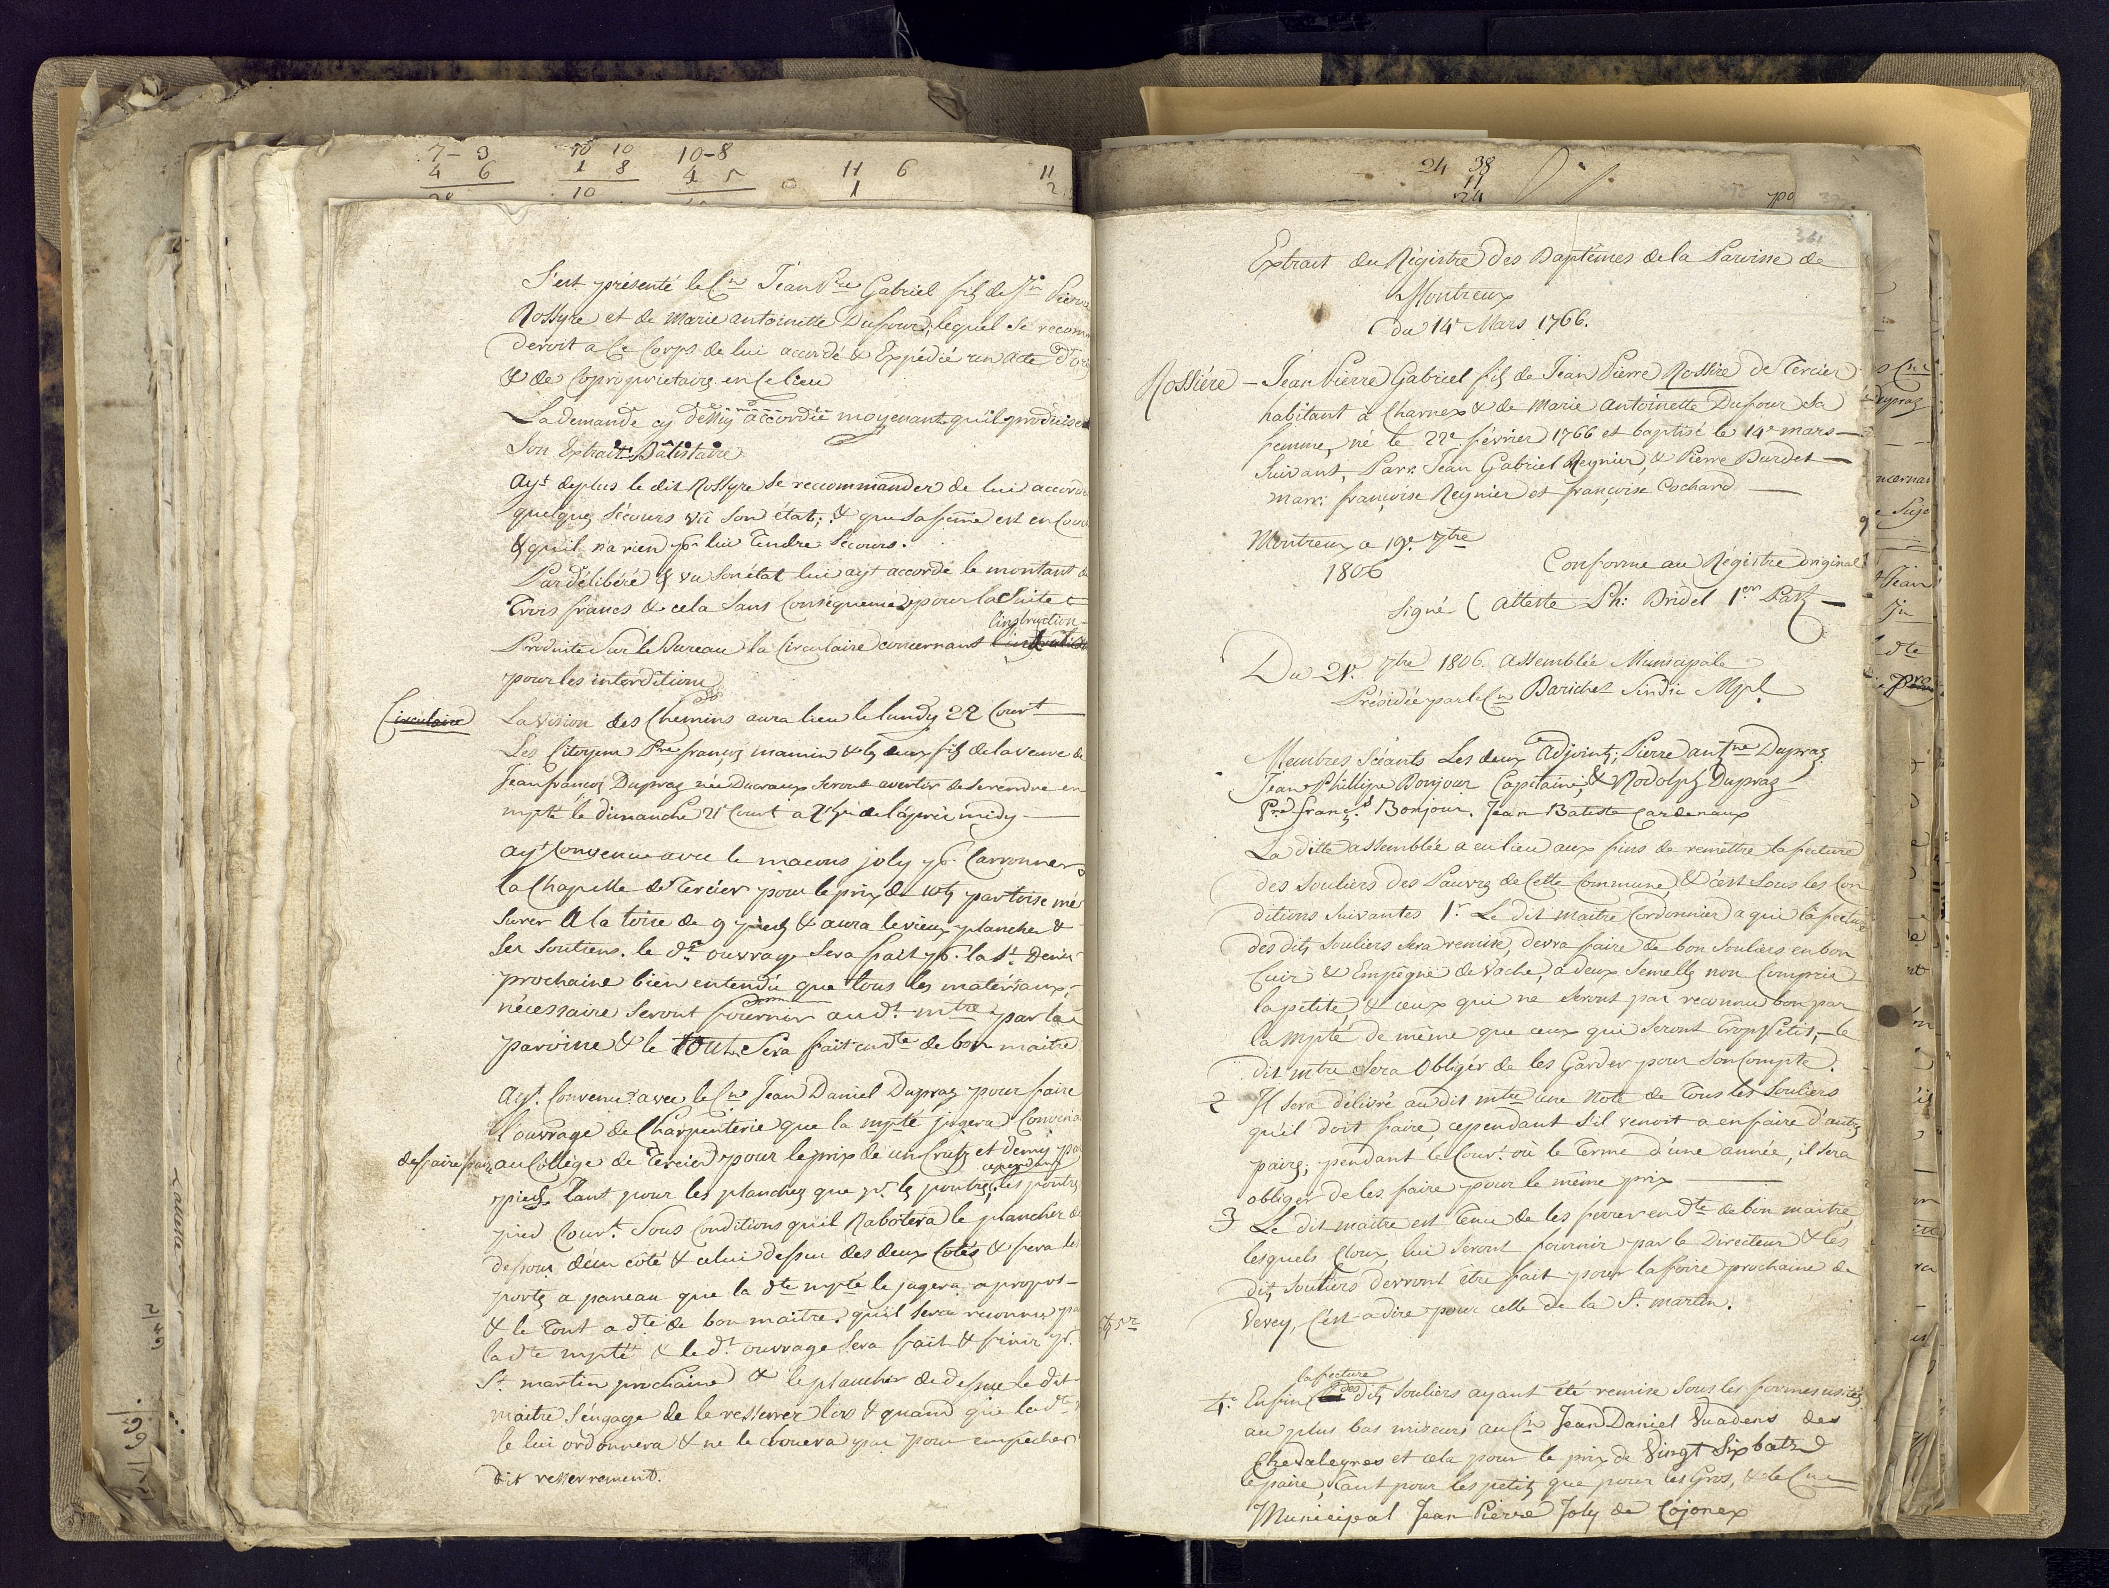 7-3 10 10 10-8 11 6 11
4 6 1 8 4 5 0 1 2
10
S'est présenté le Cn Jean Pre Gabriel fils de Jn Pierre
Rossyre et de Marie antoinette Dufour, lequel se recom
deroit a Ce Corps de lui accordé & Expédié un acte d'ori
& de Coproprietaire en Ce lieu
La demande cy dessus accordée moyenant qu'il produise
Son Extrait Batistaire
ayt deplus le dit Rossyre se reccommander de lui accorder
quelques sécours vû son état; & que sa feme est en Couche
& qu'il n'a rien pr lui Tendre Sécours.
Par délibéré & vu son état lui ayt accordé le montant de
Trois francs & cela Sans Conséquence pour la Suite
l'instruction
Produite Sur le Bureau la Circulaire concernant
pour les interditions
Circulaire
La vision des Chemins aura lieu le lundy 22 Court
Les Citoyens Pre françs mamin & les deux fils de la veuve de
Jean françois Dupraz née Ducraux seront avertir de se rendre en
mpté le dimanche 21 Court a de l'après midy
ayt Convenu avec le macons joly pr Carronner
la Chapelle de Tercier pour le prix de par toise mé
surer A la toise de 9 pieds & aura le vieux plancher &
Ses soutiens. le dt ouvrage Sera fait pr la St Denis
prochaine bien entendu que tous les matériaux
nécessaire seront fournir au dt mtre par la
paroisse & le tout Sera fait en dte de bon maitre
Ayt Convenu avec le Cn Jean Daniel Dupraz pour faire
l'ouvrage de Charpenterie que la mpté jugera Convena
de faire faire au Collége de Tercier pour le prix de un Crutz et demy par
cependant
pieds Tant pour les planches que pr les poutres, les poutres
pied Court Sous Conditions qu'il Rabotera le plancher de
dessous d'un côté & celui dessus des deux Cotés & fera les
portes a paneau que la dte mpté le jugera apropos
& le Tout a dte de bon maitre qu'il sera reconnu par
la dte mpté & le dt ouvrage Sera fait & finir pr
St martin prochaine & le plancher de dessus le dit
maitre s'engage de le resserrer lors & quand que la dte
le lui ordonnera & ne le clouera pas pour empécher
dit resserrement.
24 38
11
24
361
Extrait du Régistre des Baptêmes de la Paroisse de
Montreux
du 14e Mars 1766.
Rossiére - Jean Pierre Gabriel fils de Jean Pierre Rossire de Tercier
habitant à Charnex & de Marie Antoinette Dufour sa
femme, né le 22e février 1766 et baptisé le 14e mars
suivant, Parr: Jean Gabriel Reynier, & Pierre Dardet
marr: françoise Reynier et françoise Cochard
Montreux a 19e 7tre
1806
Conforme au Régistre original
Signé ( Atteste Ph: Bridel 1er Past
Du 21e 7tre 1806. Assemblée Municipale
Présidée par le Cn Barichet Sindic Mpl
Membres Séants Les deux Adjoints; Pierre antne Dupraz
Jean Phillipe Bonjour Capitaine, & Rodolph Dupraz
Pre françs Bonjour. Jean Batiste Cardenaux
La ditte assemblée a eu lieu aux fins de remettre la facture
des Souliers des Pauvres de Cette Commune, & c'est Sous les Con
ditions Suivantes 1r Le dit maitre Cordonnier a qui la facture
des dits souliers sera remise, devra faire de bon souliers en bon
Cuir & Empégne de Vache, a deux Semelles non Compris
la petite, & ceux qui ne seront pas reconnu bon par
la mpté de même que ceux qui seront Trop Petit, le
dit mtre Sera Obligér de les Garder pour son Compte.
2 Il sera délivré au dit mtre une Note de Tous les Souliers
qu'il doit faire, cependant s'il venoit a en faire d'autres
paires, pendant le Court où le Terme d'une année, il sera
obliger de les faire pour le même prix
3 Le dit maitre est Tenu de les ferrer en dte de bon maitre,
lesquels Cloux, lui seront fournir par le Directeur & les
dits souliers devront être fait pour la foire prochaine de
Vevey, C'est-a-dire pour celle de la St martin.
la facture
4e Enfin des dits souliers ayant été remise sous les formes usitées
au plus bas miseurs au Cn Jean Daniel Vuadens des
Chevaleyres et cela pour le prix de Vingt Six batz
le paire, Tant pour les petits que pour les Gros, & le Cn
Municipal Jean Pierre Joly de Cojonex